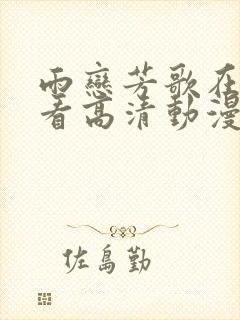 雨戀芳歌在
看高清動漫
佐島勤